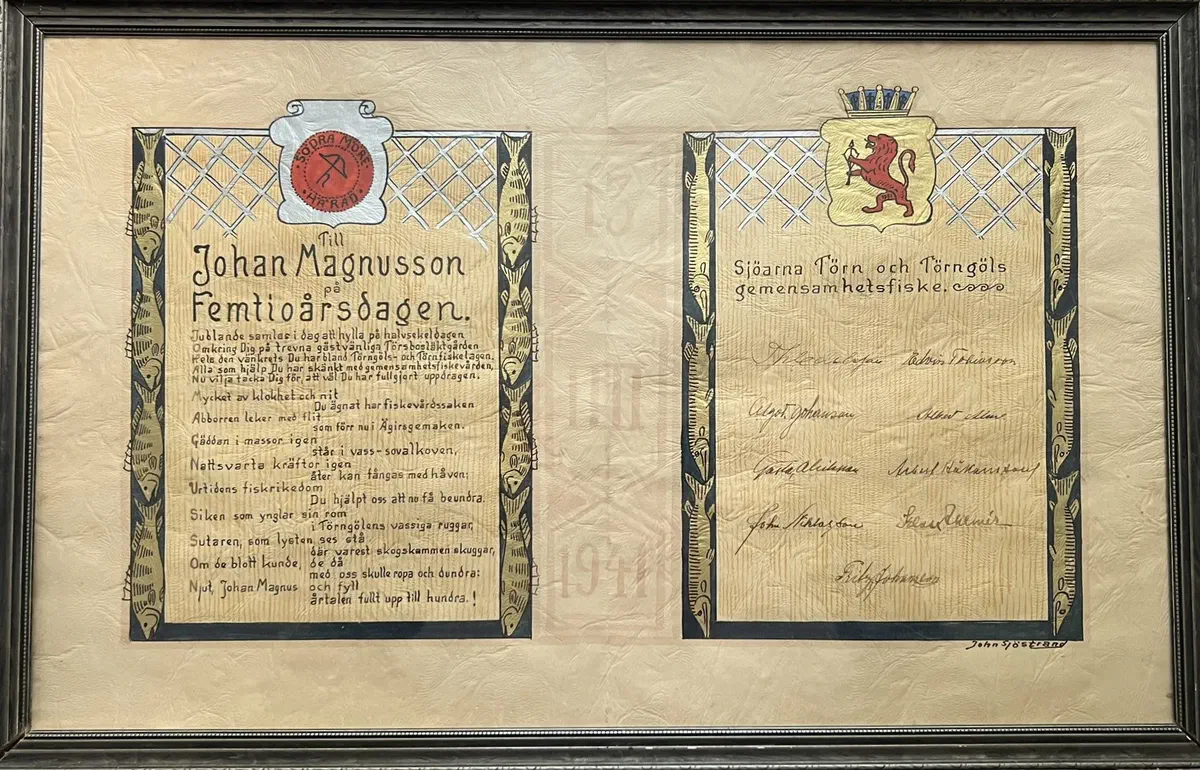 SÖDRA MÖRE
HÄRAD
Till
Johan Magnusson
på
Femtioårsdagen.
Jublande samlas i dag att hylla på halvsekeldagen
Omkring Dig på trevna gästvänliga Törsbostäktgården
Hela den vänkrets Du har bland Törngöls- och Törnfiskelagen,
Alla som hjälp Du har skänkt med gemensamhetsfiskevården,
Nu vilja tacka Dig för att väl Du har fullgjort uppdragen.
Mycket av klokhet och nit
Du ägnat har fiskevårdssaken
Abborren leker med flit
som förr nu i Ägirsgemaken.
Gäddan i massor igen
står i vass-sovalkoven,
Nattsvarta kräftor igen
åter kan fångas med håven;
Urtidens fiskrikedom
Du hjälpt oss att nu få beundra.
Siken som ynglar sin rom
i Törngölens vassiga ruggar,
Sutaren, som lysten ses stå
där varest skogskammen skuggar,
Om de blott kunde, de då
med oss skulle ropa och dundra:
Njut, Johan Magnus och fyll
årtalen fullt upp till hundra.!
13
1941
Sjöarna Törn och Törngöls
gemensamhetsfiske.
Elvin Tobiasson
Algot Johansson
Gösta
John
Fritz Johansson
John Sjöstrand